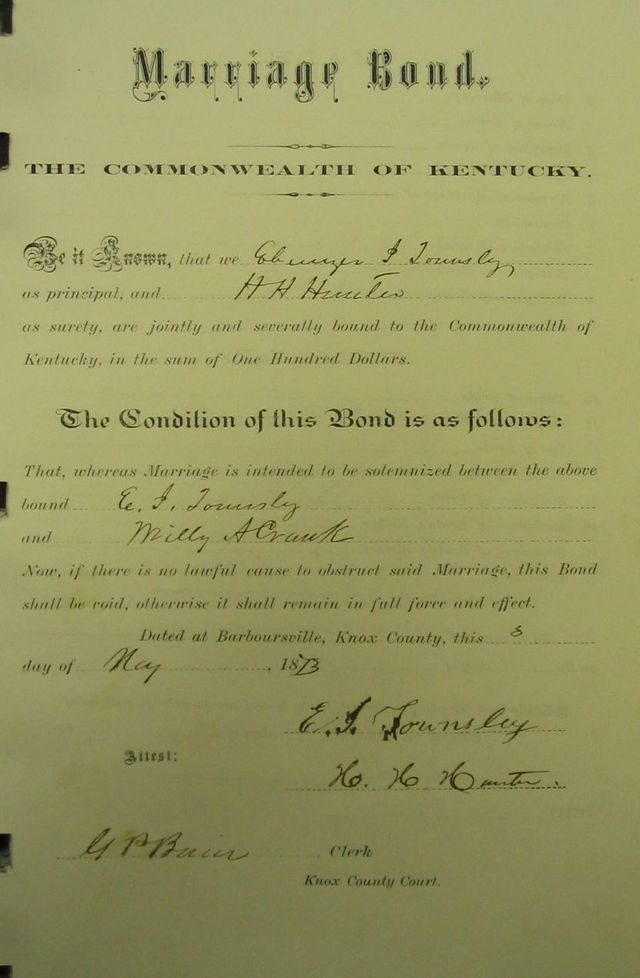 Marriage Bond.
THE COMMONWEALTH OF KENTUCKY.
Be it Known, that we Ebenezer J Townsly,
as principal, and H H Hunter
as surety, are jointly and severally bound to the Commonwealth of
Kentucky, in the sum of One Hundred Dollars.
The Condition of this Bond is as follows:
That, whereas Marriage is intended to be solemnized between the above
bound E. J. Townsly
and Milly A Crank
Now, if there is no lawful cause to obstruct said Marriage, this Bond
shall be void, otherwise it shall remain in full force and effect.
Dated at Barboursville, Knox County, this 3
day of May, 1873
E. J. Townsley
Attest:
H. H Hunter.
G P Clerk
Knox County Court.